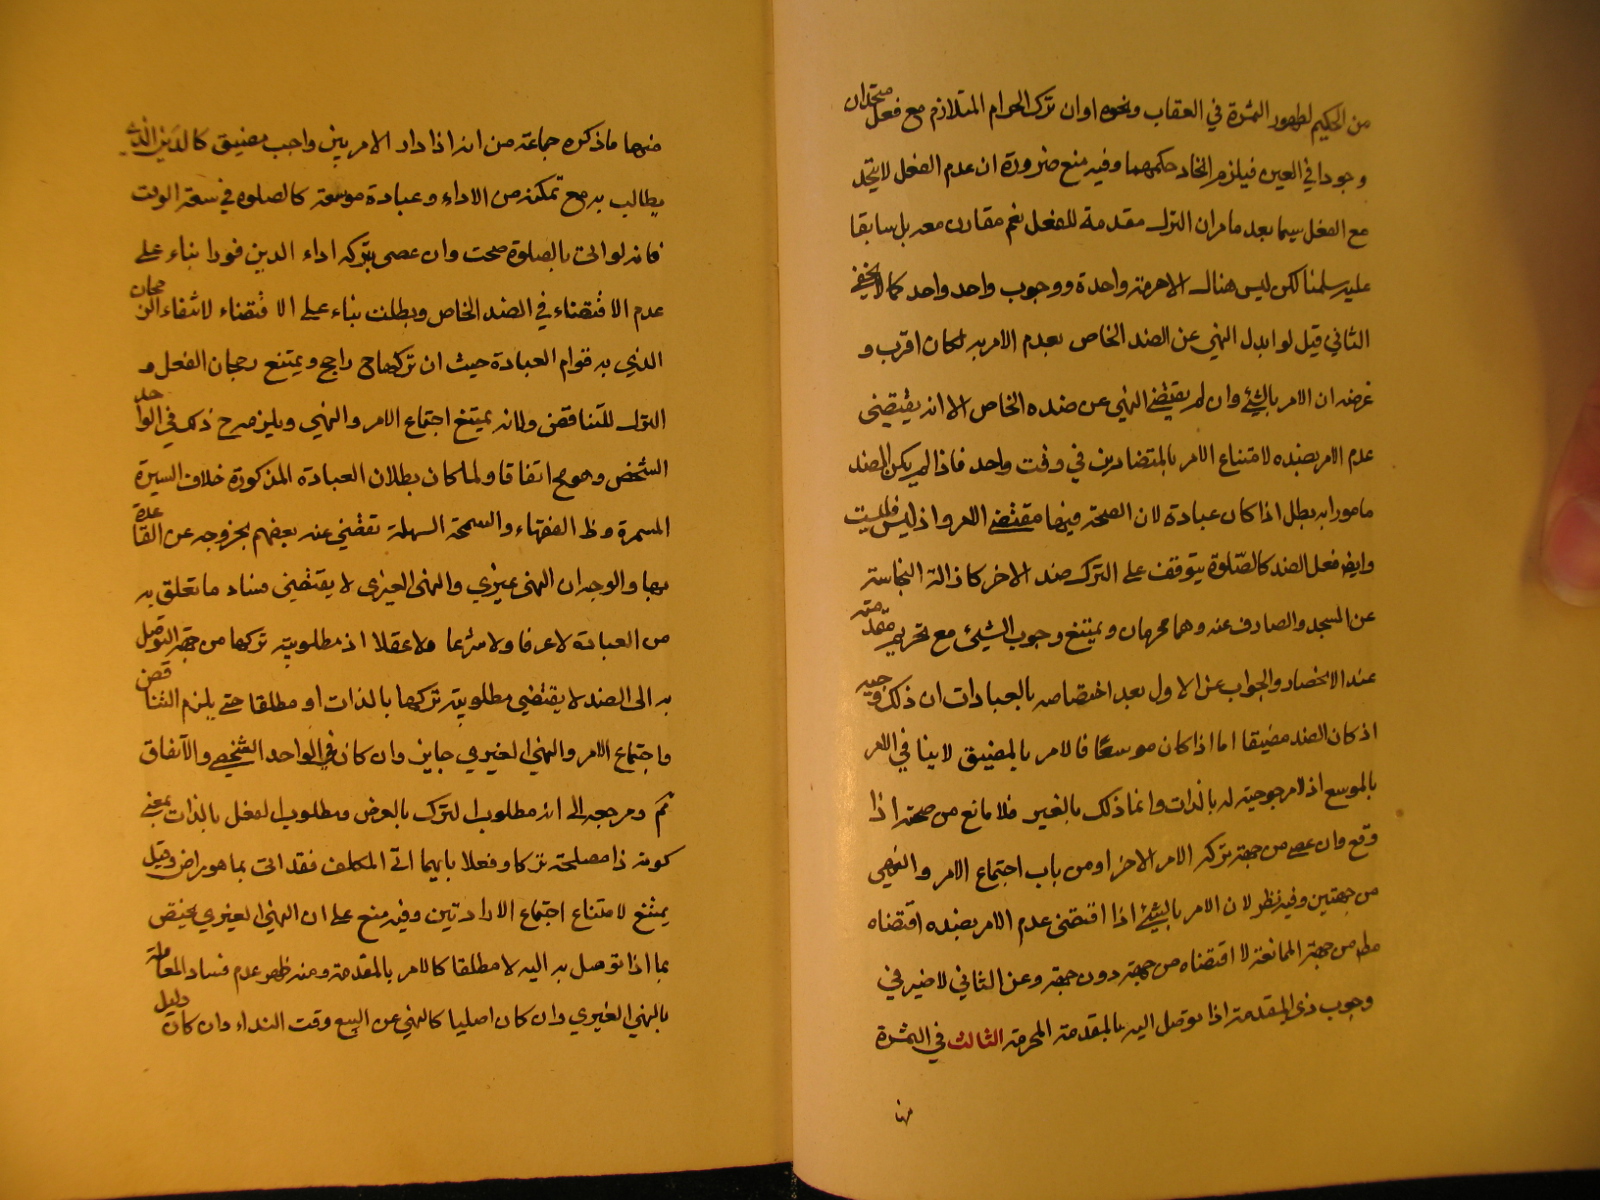 من الحكيم لظهور الثمرة في العقاب ونحوه اوان ترك الحرام المتلازم مع فعل متحدان
وجودا في العين فيلزم اتحاد حكمهما وفيه منع ضرورة ان عدم الفعل لا يتحد
مع الفعل سيما بعد ما مر ان الترك مقدمة للفعل نعم مقارن معه بل سابقا
عليه سلمنا لكن ليس هناك الا حرمة واحدة ووجوب واحد واحد كما لا يخفى
الثاني قيل لو ابدل النهي عن الضد الخاص بعدم الامر به لكان اقرب و
غرضه ان الامر بالشئ وان لم يقتضي النهي عن ضده الخاص الا انه يقتضي
عدم الامر بضده لامتناع الامر بالمتضادين في وقت واحد فاذا لم يكن الضد
مامورا به بطل اذا كان عبادة لان الصحة فيها مقتضى الامر واذ ليس فليست
وايضا فعل الضد كالصلوة يتوقف على الترك ضد الاخر كازالة النجاسة
عن المسجد والصارف عنه وهما محرمان ويمتنع وجوب الشيئ مع تحريم مقدمته
عند الانحصار والجواب عن الاول بعد اختصاصه بالعبادات ان ذلك وجيه
اذ كان الضد مضيقا اما اذا كان موسعا فالامر بالمضيق لا ينافي الامر
بالموسع اذ لا مرجوحية له بالذات وانما ذلك بالغير فلا مانع من صحته اذا
وقع وان عصى من جهة تركه الامر الاخر او من باب اجتماع الامر والنهي
من جهتين وفيه نظر لان الامر بالشئ اذا اقتضى عدم الامر بضده اقتضاه
مط من جهة الممانعة لا اقتضاه من جهة دون جهة وعن الثاني لا ضير في
وجوب ذي المقدمة اذا توصل اليه بالمقدمة المحرمة الثالث في الثمرة
منها
منها ما ذكره جماعة من انه اذا دار الامر بين واجب مضيق كالدين الذي
يطالب به مع تمكنه من الاداء وعبادة موسعة كالصلوه في سعة الوقت
فانه لو اتى بالصلوة صحت وان عصى بتركه اداء الدين فورا بناء على
عدم الاقتضاء في الضد الخاص وبطلت بناء على الاقتضاء لانتفاء الرجحان
الذي به قوام العبادة حيث ان تركها ح راجح ويمتنع رجحان الفعل و
الترك للتناقض ولانه يمتنع اجتماع الامر والنهي ويلزم ح ذلك في الواحد
الشخص وهو مح اتفاقا ولما كان بطلان العبادة المذكورة خلاف السيرة
المستمرة وظ الفقهاء والسمحة السهلة تفصي عنه بعضهم بخروجه عن القاعدة
بها والوجه ان النهى غيري والنهى الغيري لا يقتضي فساد ما تعلق به
من العبادة لا عرفا ولا شرعا ولا عقلا اذ مطلوبية تركها من جهة التوصل
به الى الضد لا يقتضي مطلوبية تركها بالذات او مطلقا حتى يلزم التناقض
واجتماع الامر والنهي الغيري جايز وان كان في الواحد الشخصي والاتفاق
ثم ومرجعه الى انه مطلوب الترك بالعرض ومطلوب الفعل بالذات بمعنى
كونه ذا مصلحة تركا وفعلا بايهما اتى المكلف فقد اتى بما هو راض وقيل
يمتنع لامتناع اجتماع الارادتين وفيه منع على ان النهي الغيري يختص
بما اذا توصل به اليه لا مطلقا كالامر بالمقدمة ومنه ظهر عدم فساد المعاملة
بالنهي الغيري وان كان اصليا كالنهي عن البيع وقت النداء وان كان دليل